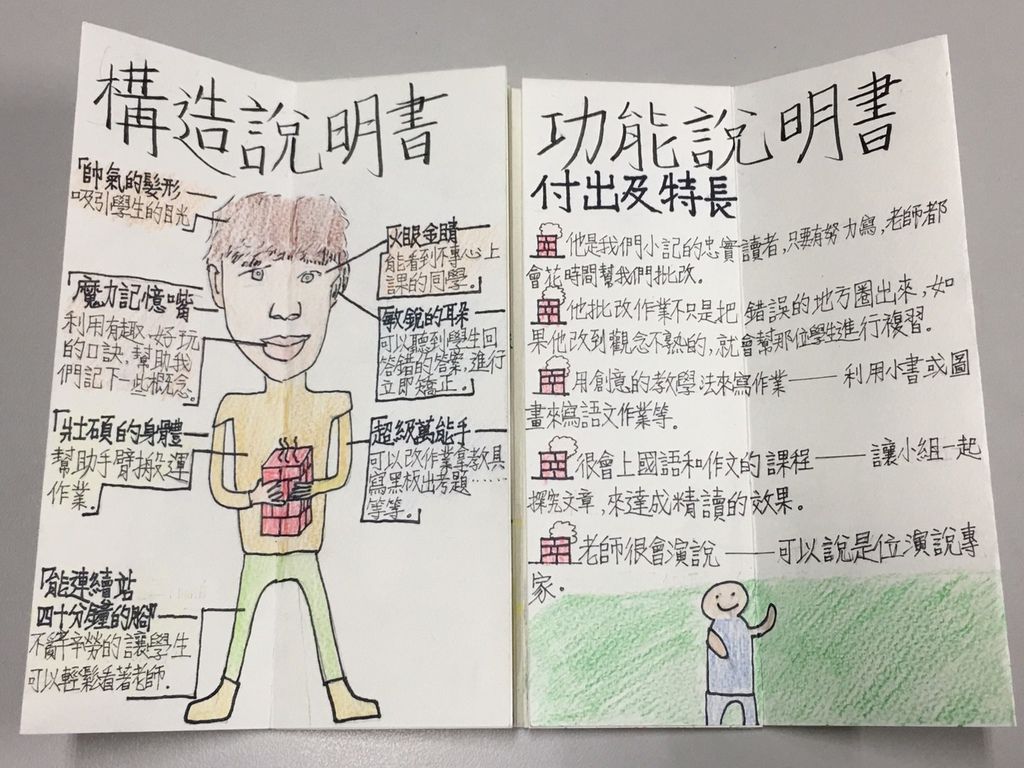 構造說明書
帥氣的髮形
吸引學生的目光
火眼金睛
能看到不專心上
課的同學。
魔力記憶嘴
利用有趣、好玩
的口訣，幫助我
們記下一些概念。
敏銳的耳朵
可以聽到學生回
答錯的答案，進行
立即矯正。
壯碩的身體
幫助手臂搬運
作業。
超級萬能手
可以改作業拿教具
寫黑板出考題……
等等。
能連續站
四十分鐘的腳
不辭辛勞的讓學生
可以輕鬆看著老師.
功能說明書
付出及特長
他是我們小記的忠實讀者，只要有努力寫，老師都
會花時間幫我們批改。
他批改作業不只是把錯誤的地方圈出來，如
果他改到觀念不熟的，就會幫那位學生進行複習。
用創意的教學法來寫作業——利用小書或圖
畫來寫語文作業等。
很會上國語和作文的課程——讓小組一起
探究文章，來達成精讀的效果。
老師很會演說——可以說是位演說專
家。